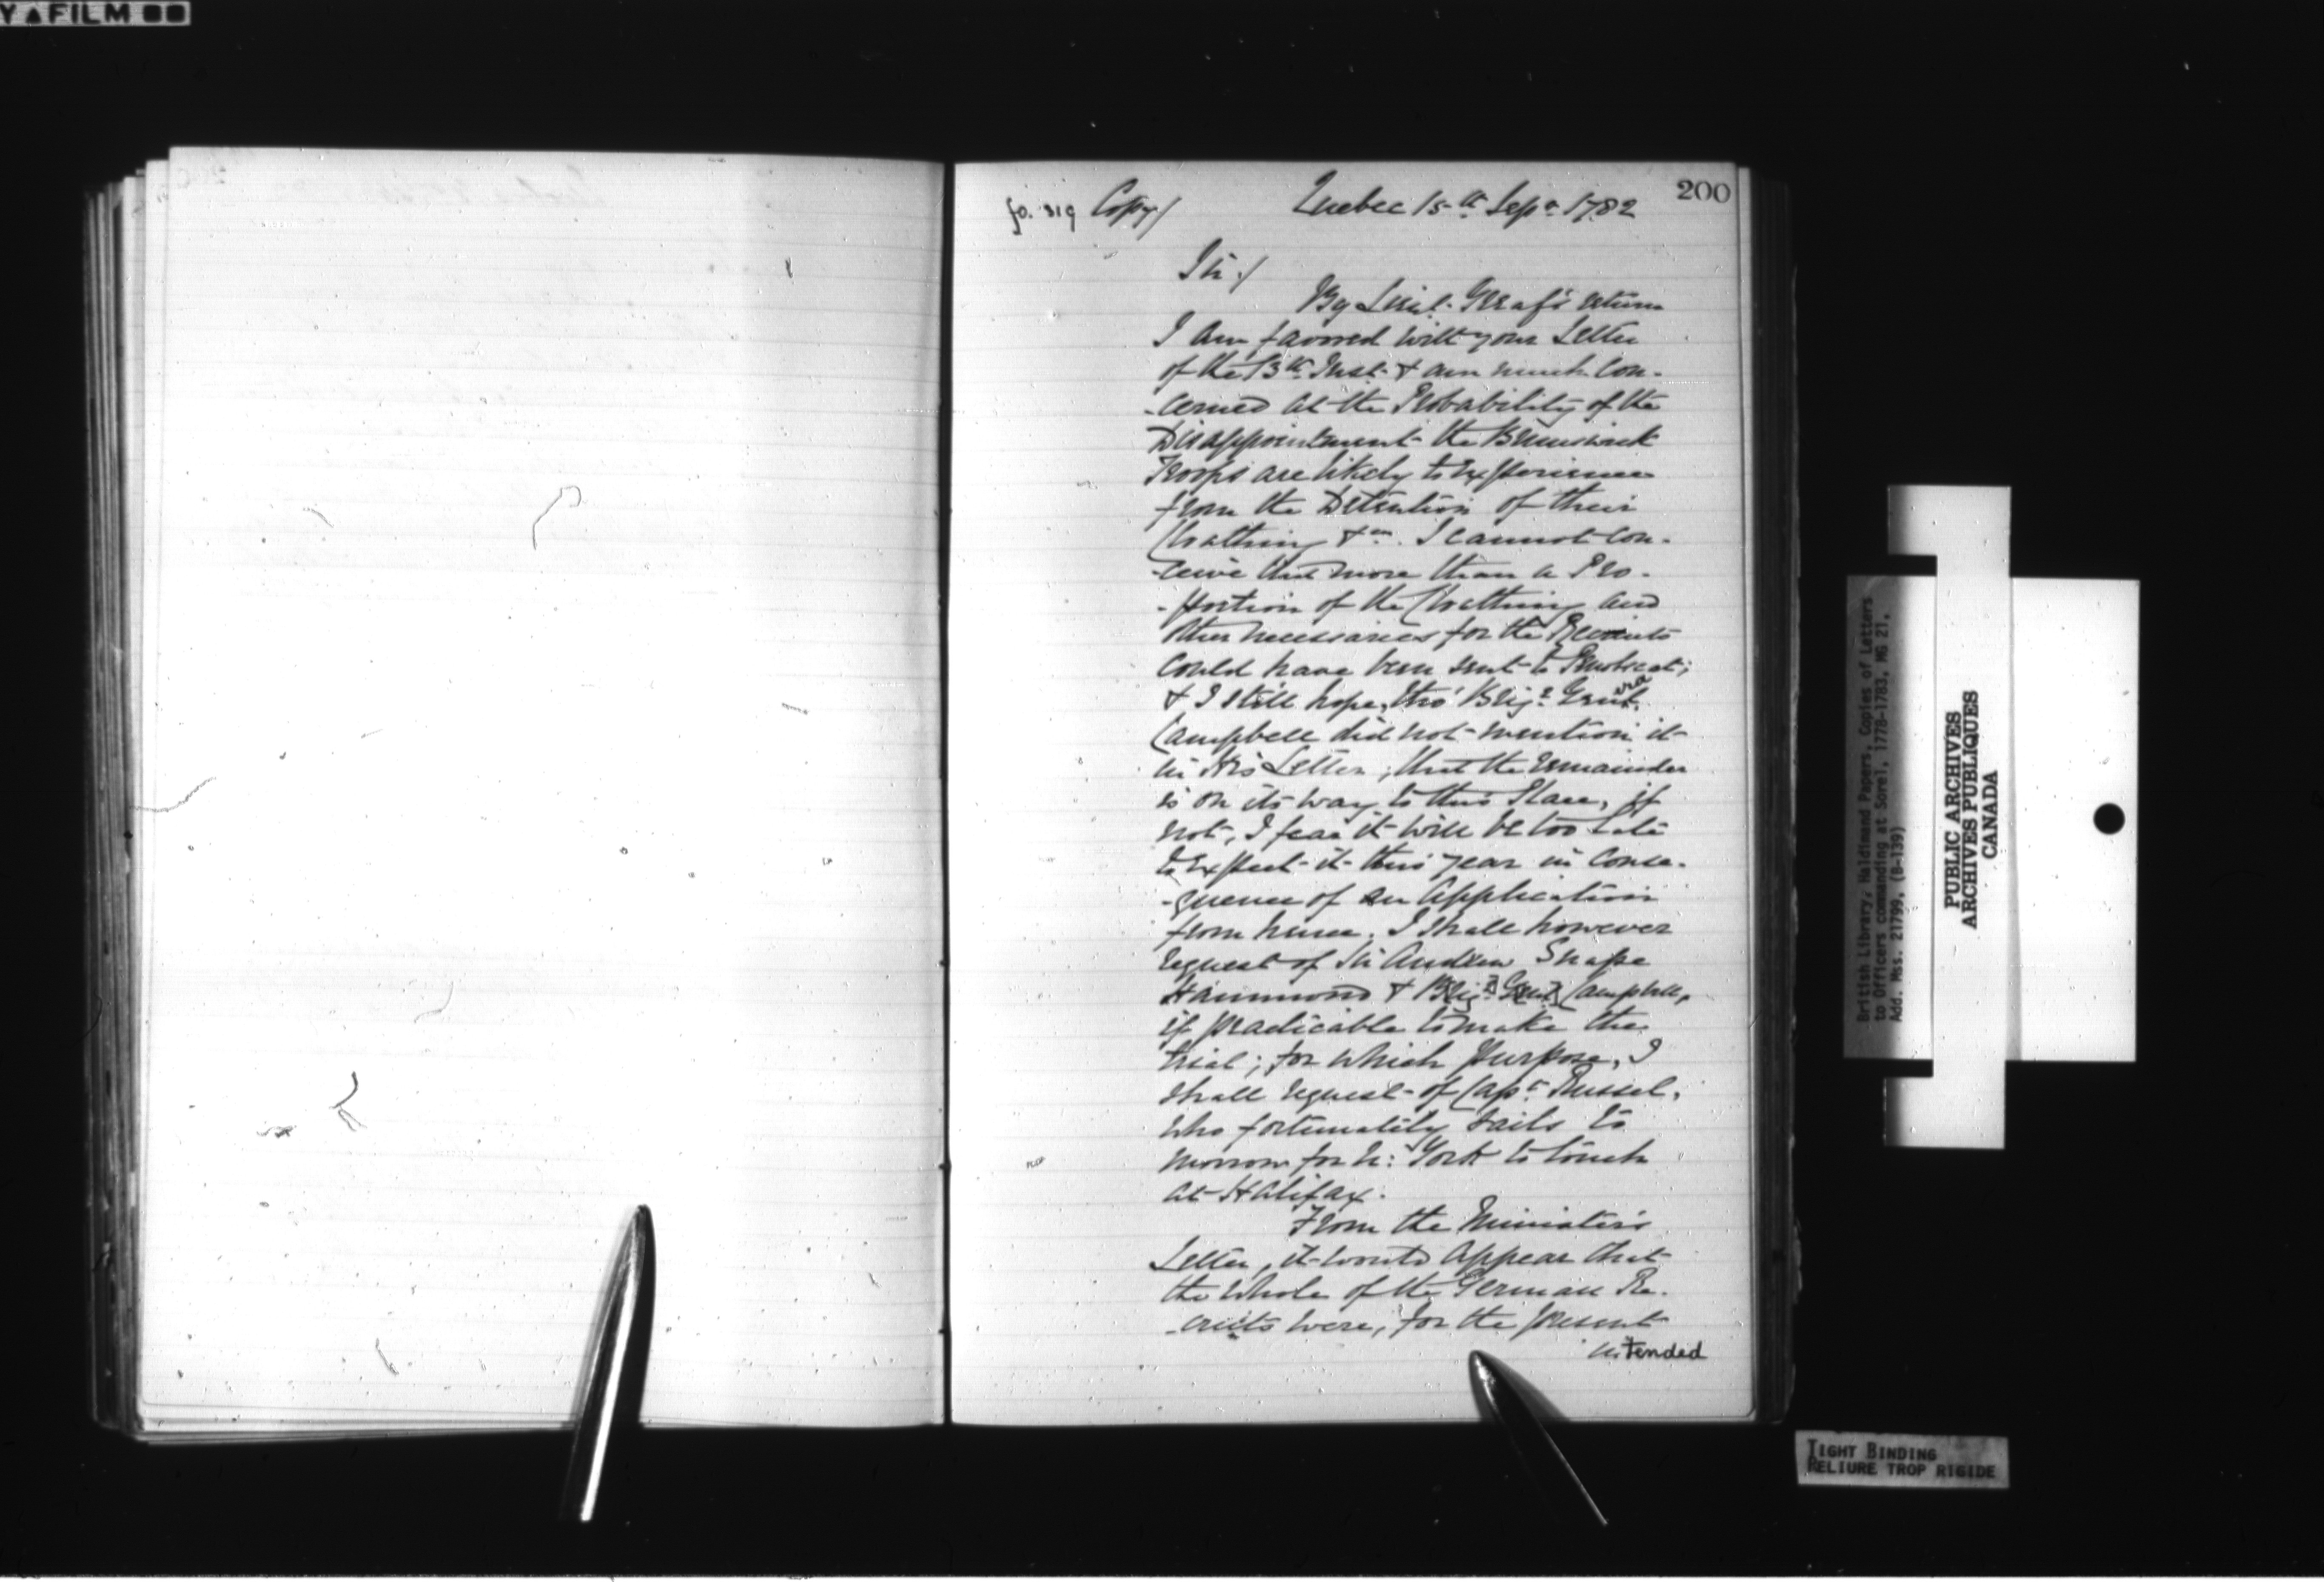 Y▲FILM
200
fo. 319 Copy/ Quebec 15th Sepr 1782
Sir:/
By Lieut. Gerafs return
I am favored with your Letter
of the 13th Inst. & am much Con-
-cerned at the Probability of the
Disappointment the Brunswick
Troops are likely to experience
from the Detention of their
Cloathing &ca. I cannot con-
-ceive that more than a Pro-
-portion of the Cloathing and
other necessaries for the Recruits
could have been sent to Penobscot;
& I still hope, tho' Brigr Genl
Campbell did not mention it
in His Letter, that the remainder
is on its way to this Place, if
not, I fear it will be too late
to expect it this year in Conse-
-quence of an Application
from hence. I shall however
request of Sir Andrew Snape
Hammond & Brigr Genl Campbell,
if practicable to make the
trial; for which purpose, I
shall request of Capt Russel,
who fortunately sails to
morrow for N: York to touch
at Halifax.
From the Minister's
Letter, it would appear that
the whole of the German Re-
-cruits were, for the present
intended
British Library, Haldimand Papers, Copies of Letters
to Officers commanding at Sorel, 1778-1783, MG 21,
Add. Mss. 21799, (B-139)
PUBLIC ARCHIVES
ARCHIVES PUBLIQUES
CANADA
TIGHT BINDING
RELIURE TROP RIGIDE